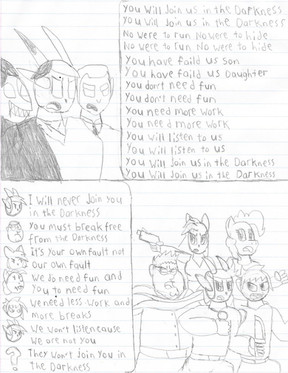 You Will Join us in the Darkness
You Will Join us in the Darkness
No were to run No were to hide
No were to run No were to hide
You have faild us son
You have faild us Daughter
You don't need fun
You don't need fun
You need more work
You need more work
You will listen to us
You will listen to us
You will Join us in the Darkness
You will Join us in the Darkness
I Will never Join you
in the Darkness
You must break free
from the Darkness
it's your own fault not
our own fault
We do need fun and
you to need fun
We need less work and
more breaks
We Won't listen cause
We are not you
?
They Won't Join you in
the Darkness